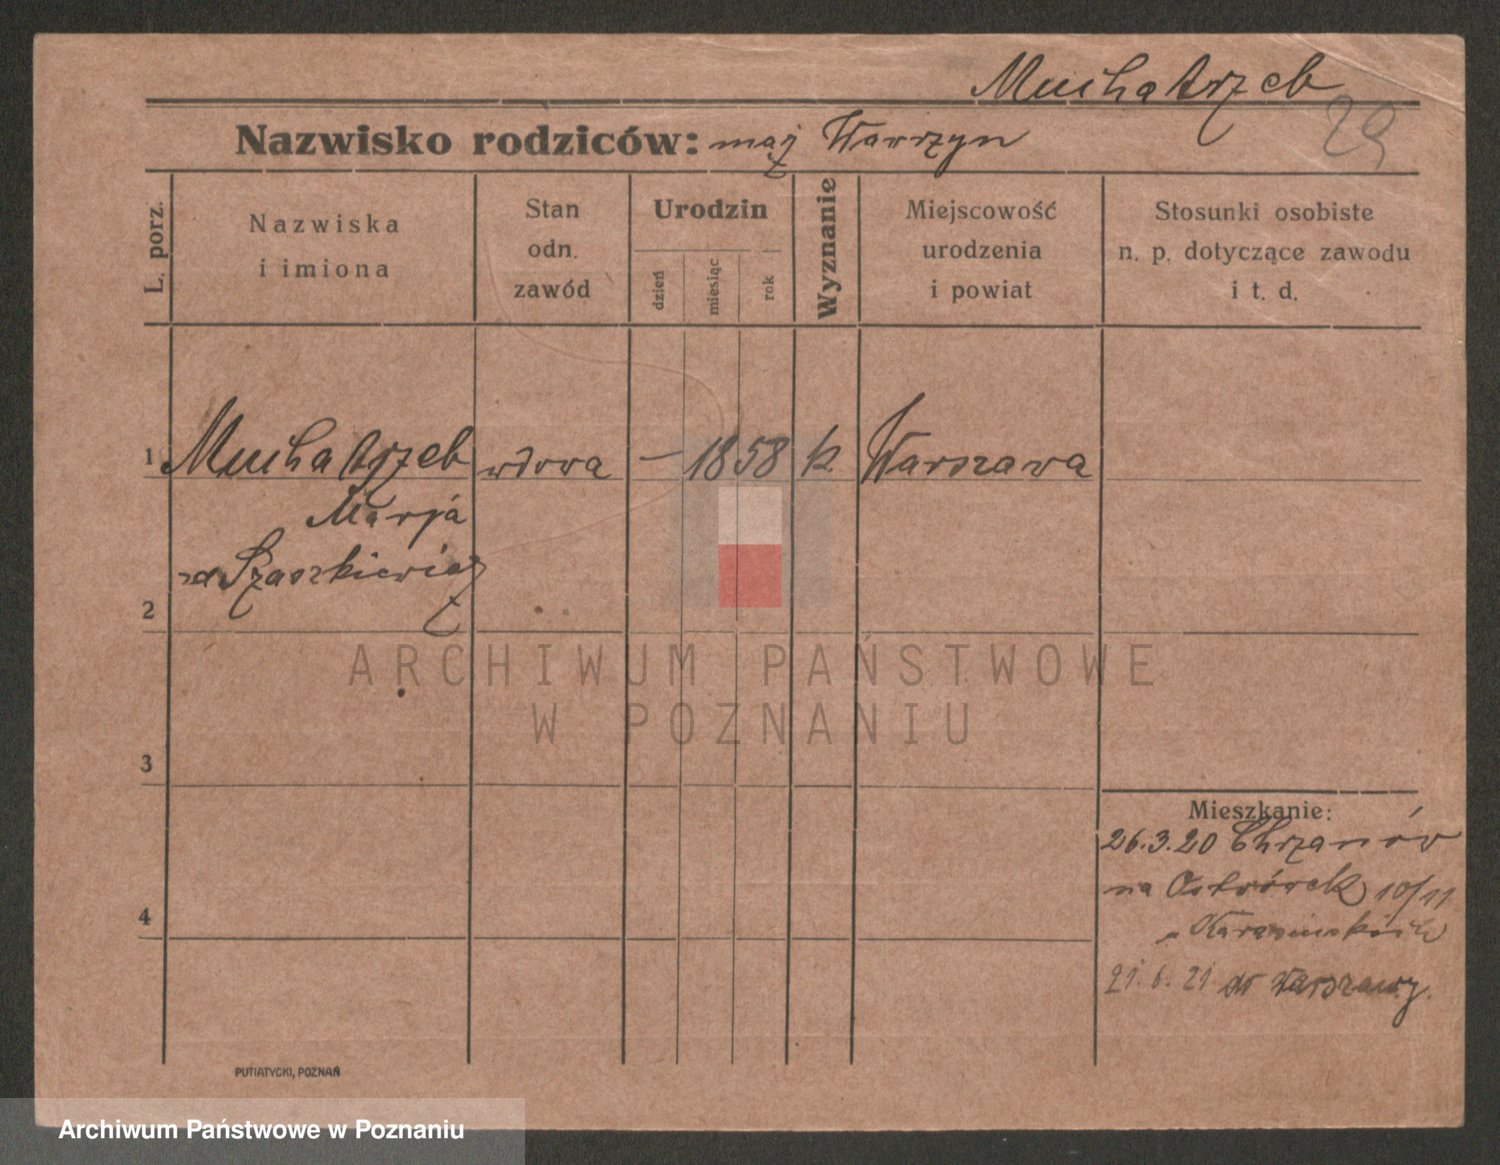 Mucha Arzeb
29
Nazwisko rodziców: mąż Wawrzyn
L. porz.
Nazwiska
i imiona
Stan
odn.
zawód
Urodzin
dzień
miesiąc
rok
Wyznanie
Miejscowość
urodzenia
i powiat
Stosunki osobiste
n. p. dotyczące zawodu
i t. d.
1 Mucha Arzeb wdowa — 1858 k. Warszawa
Marja
zd Szaszkiewicz
2
ARCHIWUM PAŃSTWOWE
W POZNANIU
3
Mieszkanie:
26.3.20 Chrzanów
na Ostrówek 10/11
4
21.6.21 do Warszawy.
PUTIATYCKI, POZNAŃ
Archiwum Państwowe w Poznaniu